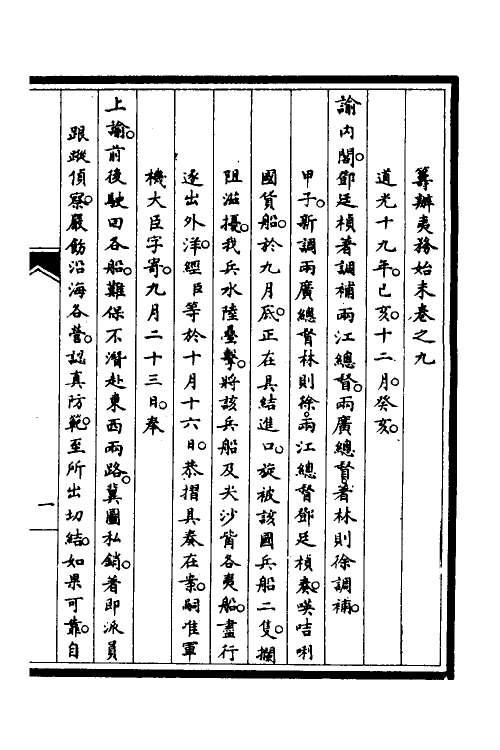 籌辦夷務始末卷之九
道光十九年。己亥。十二月。癸亥。
諭內閣。鄧廷楨著調補兩江總督。兩廣總督著林則徐調補。
甲子。新調兩廣總督林則徐。兩江總督鄧廷楨奏。㗆咭唎
國貨船。於九月底。正在具結進口。旋被該國兵船二隻。攔
阻滋擾。我兵水陸疊擊。將該兵船及尖沙嘴各夷船。盡行
逐出外洋。經臣等於十月十六日。恭摺具奏在案。嗣准軍
機大臣字寄。九月二十三日。奉
上諭。前後駛回各船。難保不潛赴東西兩路。冀圖私銷。著即派員
跟蹤偵察。嚴飭沿海各營。認真防範。至所出切結。如果可靠。自
一